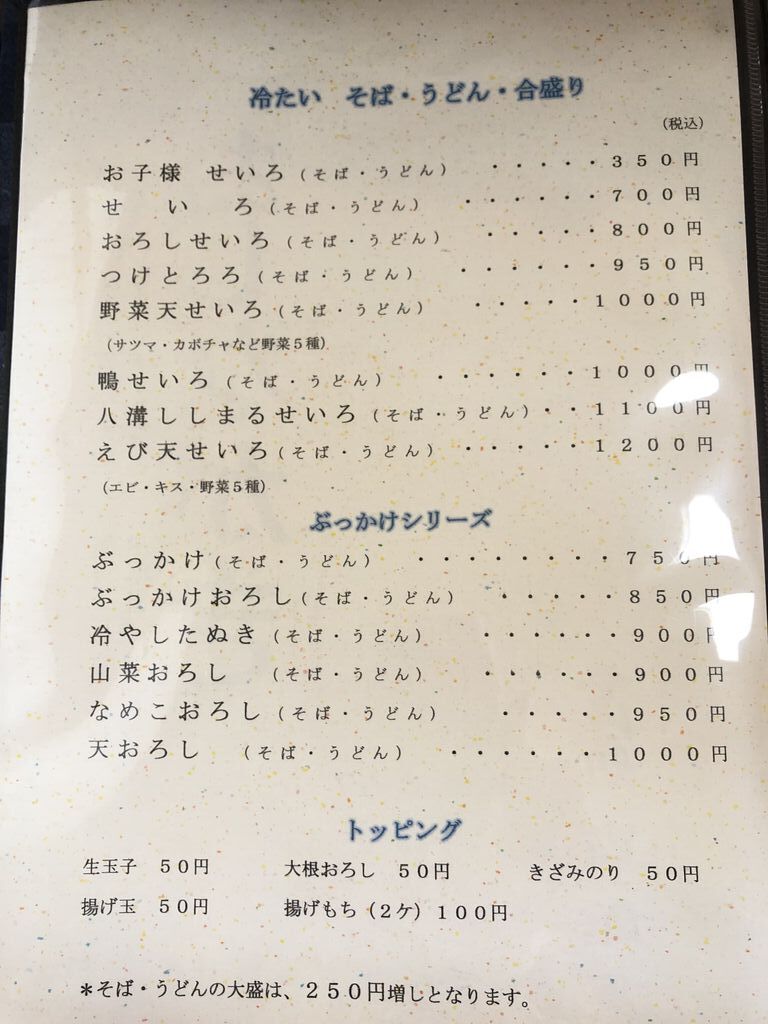 冷たい　そば・うどん・合盛り
（税込）
お子様　せいろ（そば・うどん）　・・・・・３５０円
せ　い　ろ（そば・うどん）　・・・・・・７００円
おろしせいろ（そば・うどん）　・・・・・８００円
つけとろろ（そば・うどん）　・・・・・・９５０円
野菜天せいろ（そば・うどん）　・・・・・１０００円
（サツマ・カボチャなど野菜５種）
鴨せいろ（そば・うどん）　・・・・・・１０００円
八溝ししまるせいろ（そば・うどん）・・１１００円
えび天せいろ（そば・うどん）　・・・・・１２００円
（エビ・キス・野菜５種）
ぶっかけシリーズ
ぶっかけ（そば・うどん）　・・・・・・・・７５０円
ぶっかけおろし（そば・うどん）　・・・・・８５０円
冷やしたぬき（そば・うどん）　・・・・・・９００円
山菜おろし　（そば・うどん）　・・・・・・９００円
なめこおろし（そば・うどん）　・・・・・９５０円
天おろし　（そば・うどん）　・・・・・・１０００円
トッピング
生玉子　５０円　大根おろし　５０円　きざみのり　５０円
揚げ玉　５０円　揚げもち（２ケ）１００円
＊そば・うどんの大盛は、２５０円増しとなります。